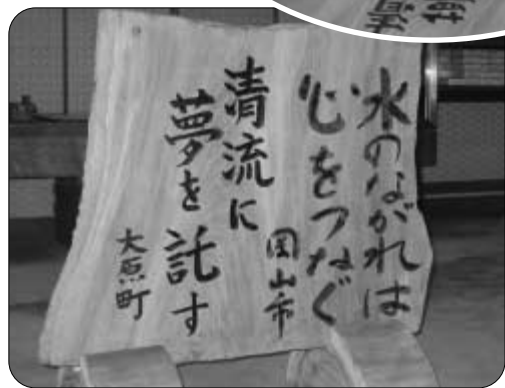 水のながれは
心をつなぐ
岡山市
清流に
夢を託す
大原町